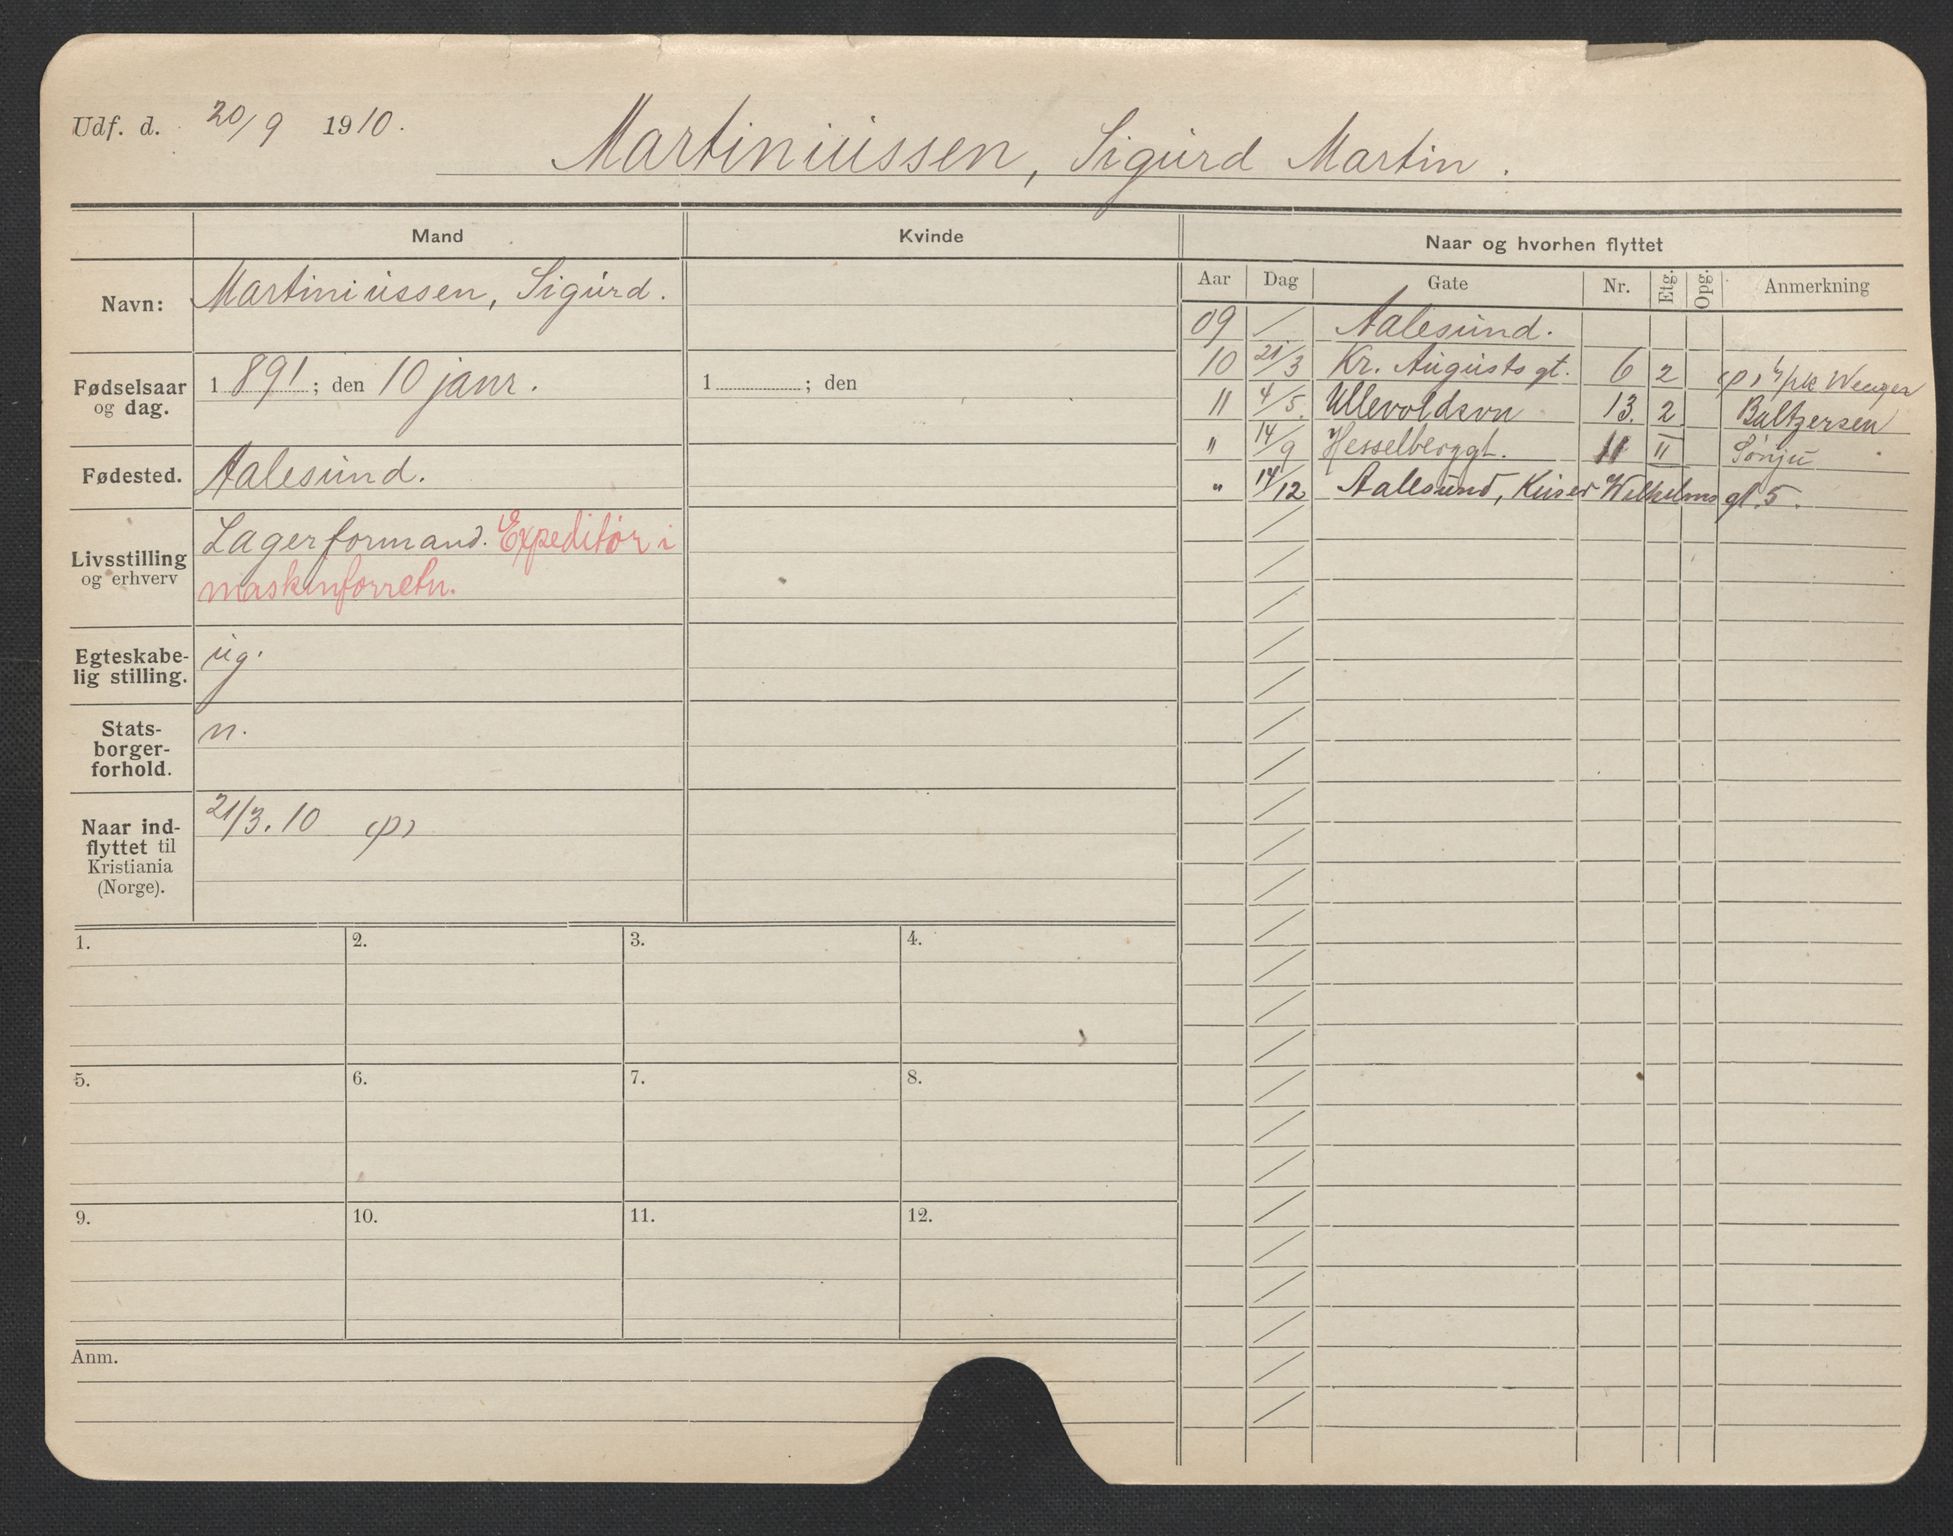 Udf. d. 20/9 1910.
Martiniussen, Sigurd Martin.
Mand
Kvinde
Naar og hvorhen flyttet
Navn: Martiniussen, Sigurd.
Fødselsaar og dag. 1891; den 10 janr. 1 ; den
Fødested. Aalesund.
Livsstilling og erhverv Lagerformand. Expeditør i
maskinforretn.
Egteskabe-
lig stilling. ug.
Stats-
borger-
forhold. n.
Naar ind-
flyttet til
Kristiania
(Norge). 21/3.10 (p)
Aar Dag Gate Nr. Etg. Opg. Anmerkning
09 / Aalesund.
10 21/3 Kr. Augusts gt. 6 2 (p) Wenger
11 4/5. Ullevoldsvn 13. 2 Baltzersen
" 14/9 Hesselberggt. 11 II Sønju
" 14/12 Aalesund, Keiser Wilhelms gt. 5.
1. 2. 3. 4.
5. 6. 7. 8.
9. 10. 11. 12.
Anm.